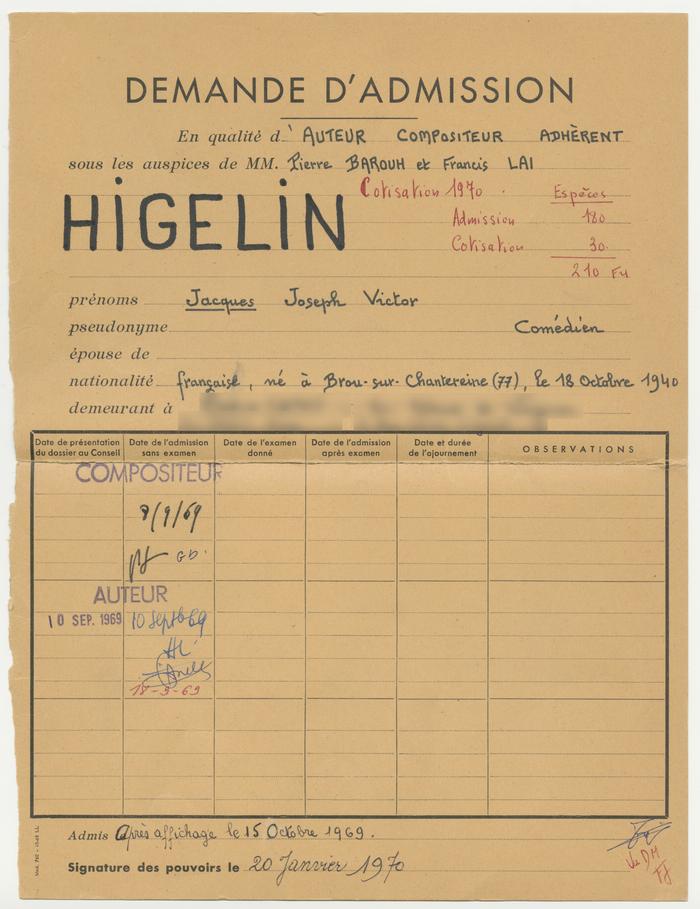 DEMANDE D'ADMISSION
En qualité d' AUTEUR COMPOSITEUR ADHÈRENT
sous les auspices de MM. Pierre BAROUH et Francis LAI
HIGELIN
Cotisation 1970 . Espèces
Admission 180
Cotisation 30.
210 Fu
prénoms Jacques Joseph Victor
pseudonyme Comédien
épouse de
nationalité française, né à Brou-sur-Chantereine (77), le 18 Octobre 1940
demeurant à
Date de présentation du dossier au Conseil
Date de l'admission sans examen
Date de l'examen donné
Date de l'admission après examen
Date et durée de l'ajournement
OBSERVATIONS
COMPOSITEUR
8/9/69
GD.
AUTEUR
10 SEP. 1969 10 Sept 69
18-9-69
Admis Après affichage le 15 Octobre 1969.
Signature des pouvoirs le 20 Janvier 1970